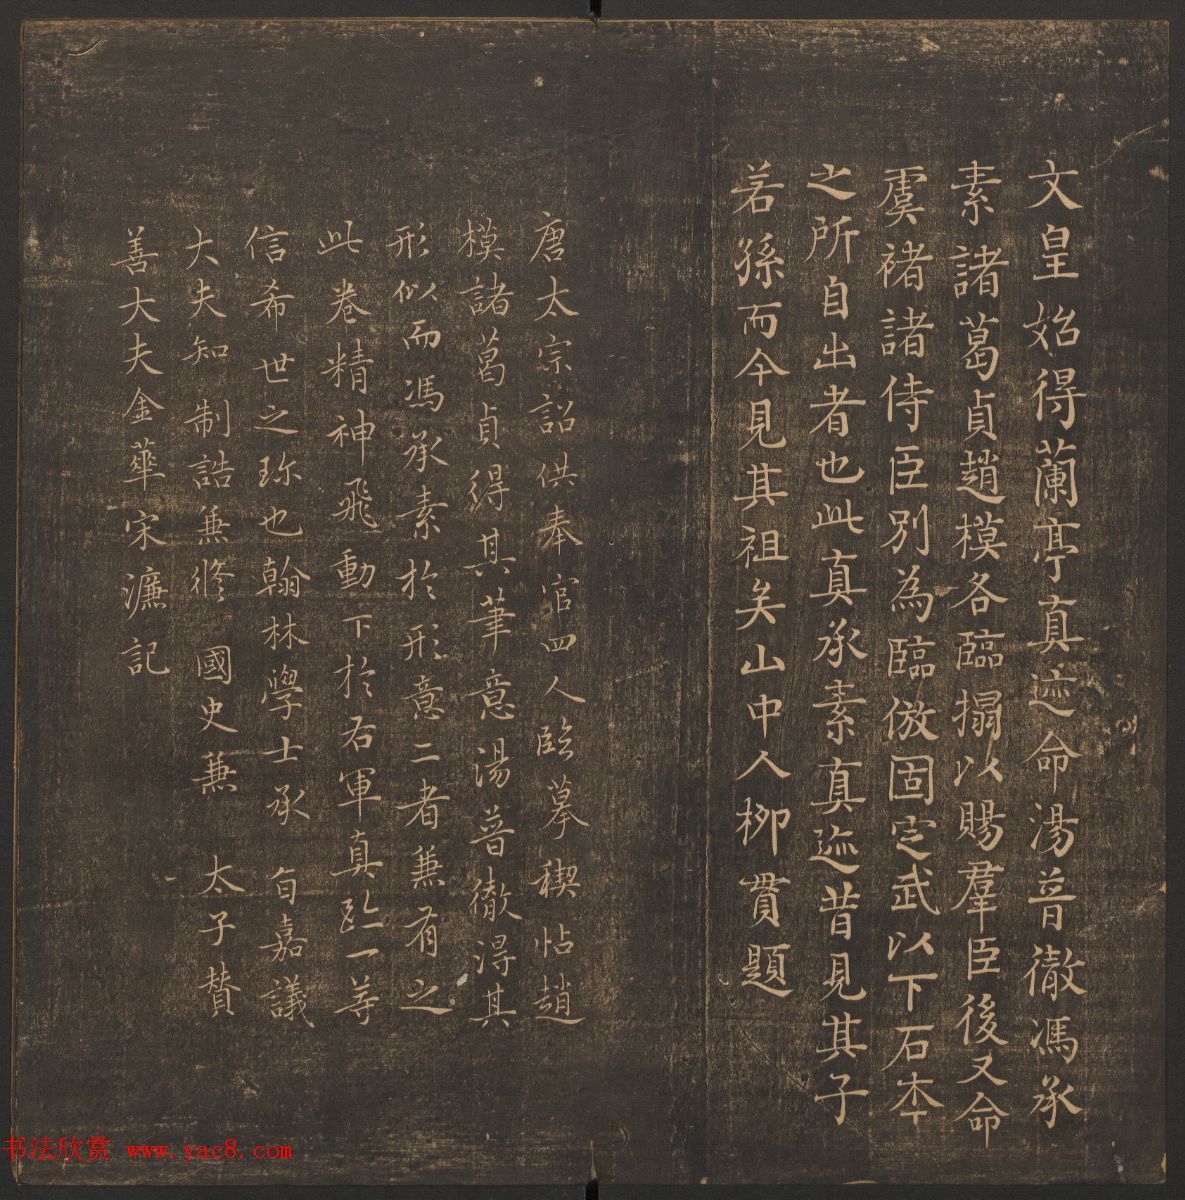 文皇始得蘭亭真迹命湯普徹馮承
素諸葛貞趙模各臨搨以賜羣臣後又命
虞褚諸侍臣別為臨倣固定武以下石本
之所自出者也此真承素真迹昔見其子
若孫而今見其祖矣山中人柳貫題
唐太宗詔供奉官四人臨摹禊帖趙
模諸葛貞得其筆意湯普徹得其
形似而馮承素於形意二者兼有之
此卷精神飛動下於右軍真跡一等
信希世之珎也翰林學士承 旨嘉議
大夫知制誥兼修 國史兼 太子贊
善大夫金華宋濂記
书法欣赏 www.yac8.com